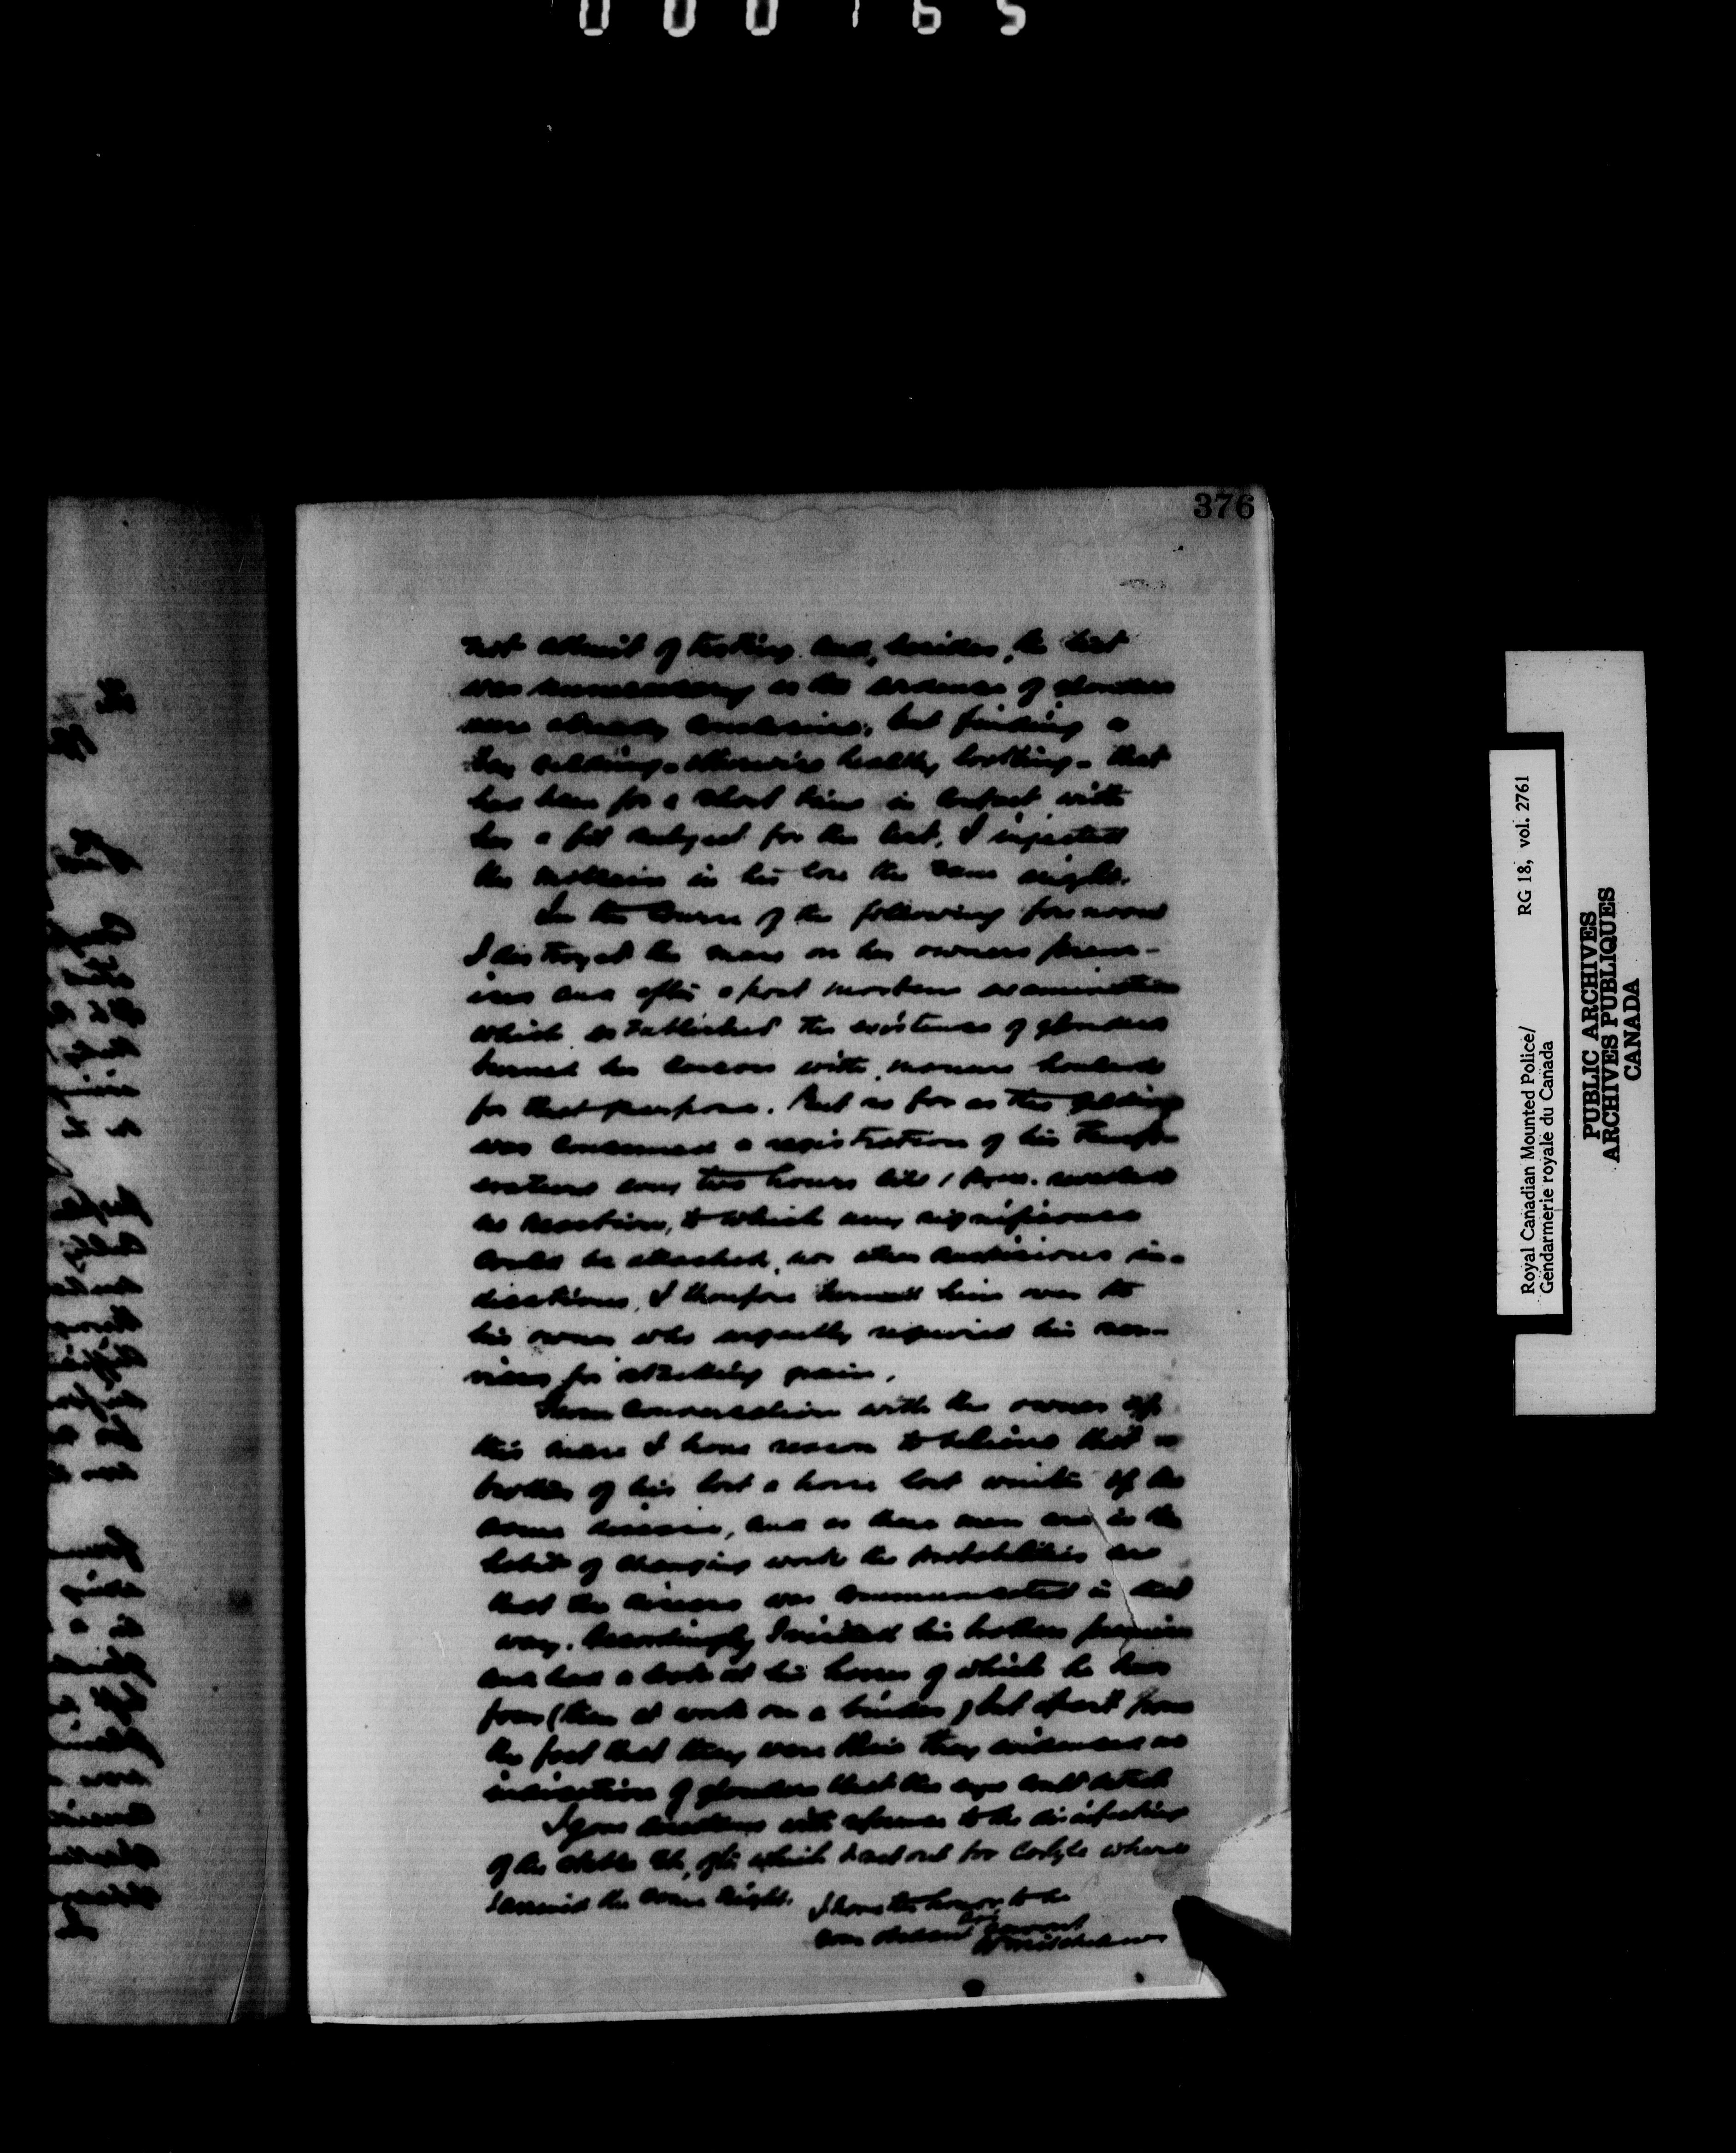 000165
376
not admit of testing and, besides, the test
was unnecessary as the evidence of glanders
were already conclusive, but finding a
bay gelding - otherwise healthy looking - that
had been for a short time in contact with
her a fit subject for the test, I injected
the mallein in his case the same night.
In the course of the following forenoon
I destroyed the mare on her owners prem-
ises and after a post mortem examination
which established the existence of glanders
burned her carcass with manure hauled
for that purpose. But as far as the gelding
was concerned a registration of his temper-
atures every two hours till 1 p.m. revealed
no reaction, to which any significance
could be attached, nor other suspicious in-
dications, I therefore turned him over to
his owner who urgently required his ser-
vices for stacking grain.
From conversation with the owner of
this mare I have reason to believe that a
brother of his lost a horse last winter of the
same disease, and as these men are in the
habit of changing work the probabilities are
that the disease was communicated in that
way. Accordingly I visited his brothers premises
and had a look at his horses of which he has
four (then at work on a binder) but apart from
the fact that they were thin they evidenced no
indication of glanders that the eye could detect
I gave directions with reference to the disinfecting
of the stable etc, after which I set out for Carlyle where
I arrived the same night. I have the honor to be
Sir
your obedient servant
Royal Canadian Mounted Police/
Gendarmerie royale du Canada
RG 18, vol. 2761
PUBLIC ARCHIVES
ARCHIVES PUBLIQUES
CANADA